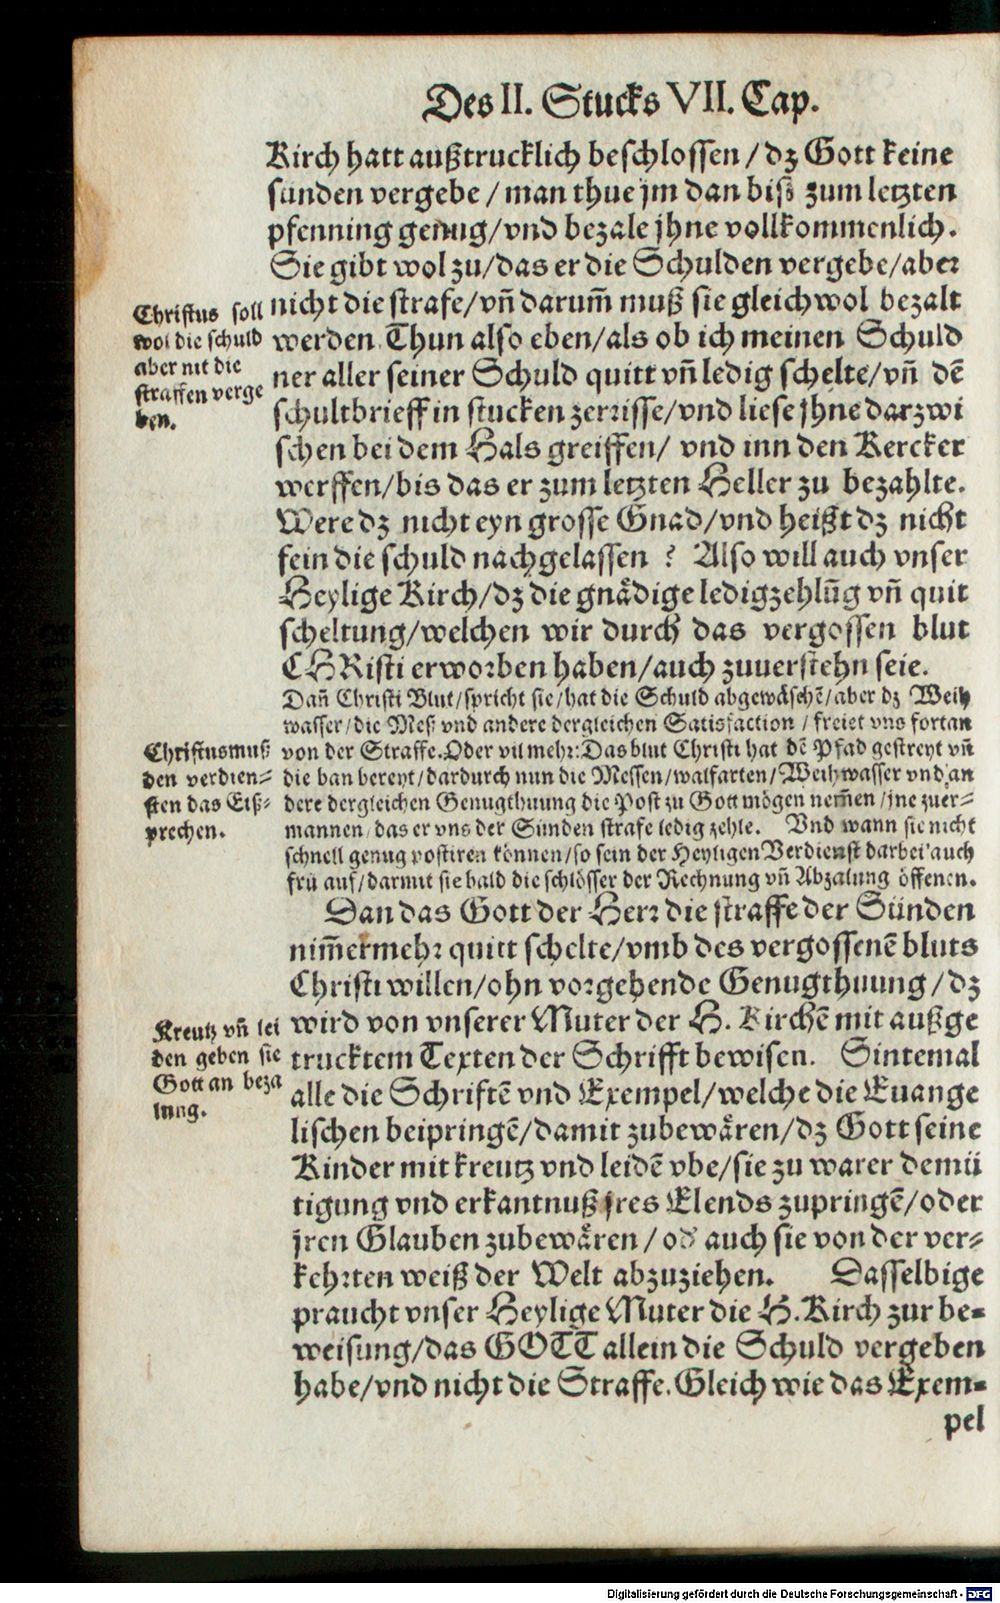 Des II. Stucks VII. Cap.
Kirch hatt außtrucklich beschlossen / dz Gott keine
sünden vergebe / man thue jm dan biß zum letzten
pfenning genug / vnd bezale jhne vollkommenlich.
Sie gibt wol zu / das er die Schulden vergebe / aber
nicht die strafe / vñ darum̃ muß sie gleichwol bezalt
werden. Thun also eben / als ob ich meinen Schuld
ner aller seiner Schuld quitt vñ ledig schelte / vñ dẽ
schultbrieff in stucken zerrisse / vnd liese jhne darzwi
schen bei dem Hals greiffen / vnd inn den Kercker
werffen / bis das er zum letzten Heller zu bezahlte.
Were dz nicht eyn grosse Gnad / vnd heißt dz nicht
fein die schuld nachgelassen ? Also will auch vnser
Heylige Kirch / dz die gnådige ledigzehlũg vñ quit
scheltung / welchen wir durch das vergossen blut
CHRisti erworben haben / auch zuuerstehn seie.
Dañ Christi Blut / spricht sie / hat die Schuld abgewåschẽ / aber dz Weih
wasser / die Meß vnd andere dergleichen Satisfaction / freiet vns fortan
von der Straffe. Oder vil mehr: Das blut Christi hat dẽ Pfad gestreyt vñ
die ban bereyt / dardurch nun die Messen / walfarten / Weihwasser vnd an
dere dergleichen Genugthuung die Post zu Gott mögen nem̃en / jne zuer-
mannen / das er vns der Sünden strafe ledig zehle. Vnd wann sie nicht
schnell genug postiren können / so sein der Heyligen Verdienst darbei auch
frü auf / darmit sie bald die schlösser der Rechnung vñ Abzalung öffenen.
Dan das Gott der Herr die straffe der Sünden
nim̃ermehr quitt schelte / vmb des vergossenẽ bluts
Christi willen / ohn vorgehende Genugthuung / dz
wird von vnserer Muter der H. Kirchẽ mit außge
trucktem Texten der Schrifft bewisen. Sintemal
alle die Schriftẽ vnd Exempel / welche die Euange
lischen beipringẽ / damit zubewåren / dz Gott seine
Kinder mit kreutz vnd leidẽ vbe / sie zu warer demü
tigung vnd erkantnuß jres Elends zupringẽ / oder
jren Glauben zubewåren / od' auch sie von der ver-
kehrten weiß der Welt abzuziehen. Dasselbige
praucht vnser Heylige Muter die H. Kirch zur be-
weisung / das GOTT allein die Schuld vergeben
habe / vnd nicht die Straffe. Gleich wie das Exem-
pel
Christus soll
wol die schuld
aber nit die
straffen verge
ben.
Christus muß
den verdien-
sten das Eiß-
prechen.
Kreutz vñ lei
den geben sie
Gott an beza
lung.
Digitalisierung gefördert durch die Deutsche Forschungsgemeinschaft - DFG